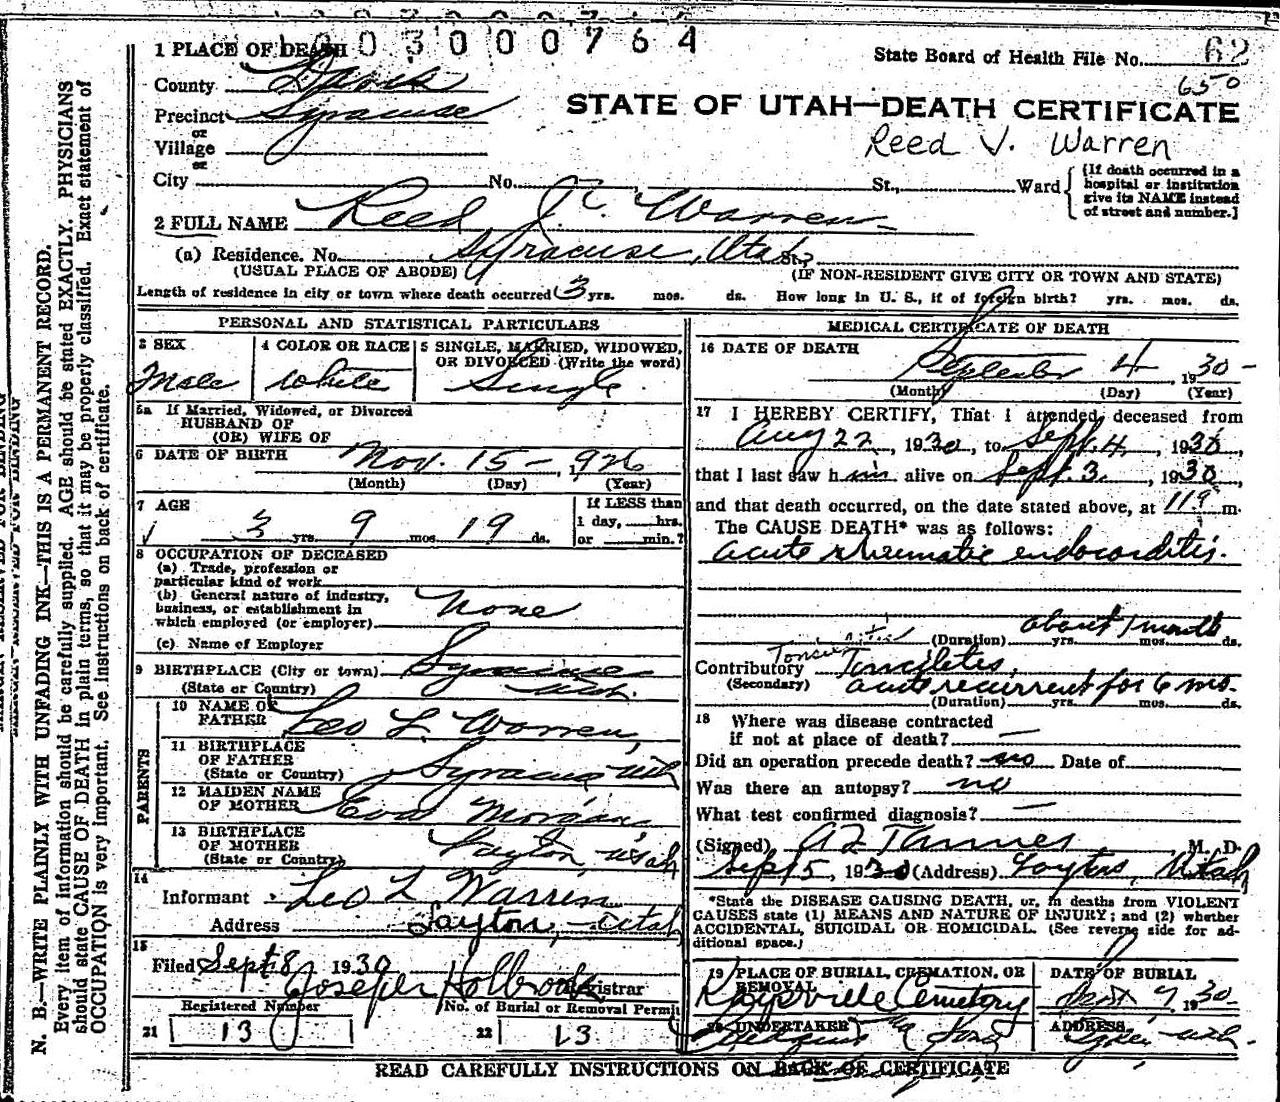 0030000764
1 PLACE OF DEATH
State Board of Health File No. 62
650
County Davis
Precinct Syracuse
or
STATE OF UTAH—DEATH CERTIFICATE
Village
or
Reed V. Warren
City No. St., Ward
(If death occurred in a
hospital or institution
give its NAME instead
of street and number.]
2 FULL NAME Reed V. Warren
(a) Residence. No. Syracuse, Utah St.,
(USUAL PLACE OF ABODE) (IF NON-RESIDENT GIVE CITY OR TOWN AND STATE)
Length of residence in city or town where death occurred 3 yrs. mos. ds. How long in U. S., if of foreign birth? yrs. mos. ds.
PERSONAL AND STATISTICAL PARTICULARS
3 SEX
Male
4 COLOR OR RACE
White
5 SINGLE, MARRIED, WIDOWED,
OR DIVORCED (Write the word)
Single
5a If Married, Widowed, or Divorced
HUSBAND OF
(OR) WIFE OF
6 DATE OF BIRTH Nov. 15 - 1926
(Month) (Day) (Year)
7 AGE
3 yrs. 9 mos. 19 ds.
If LESS than
1 day, hrs.
or min.?
8 OCCUPATION OF DECEASED
(a) Trade, profession or
particular kind of work
(b) General nature of industry,
business, or establishment in
which employed (or employer) None
(c) Name of Employer
9 BIRTHPLACE (City or town) Syracuse
(State or Country) Utah.
PARENTS
10 NAME OF
FATHER Leo L. Warren,
11 BIRTHPLACE
OF FATHER
(State or Country) Syracuse, Utah
12 MAIDEN NAME
OF MOTHER Eva Morgan
13 BIRTHPLACE
OF MOTHER
(State or Country) Layton, Utah
14
Informant Leo L Warren
Address Layton, Utah
15
Filed Sept 8, 1930
Joseph Holbrook
Registrar
Registered Number No. of Burial or Removal Permit
21 13 22 13
MEDICAL CERTIFICATE OF DEATH
16 DATE OF DEATH
September 4 1930-
(Month) (Day) (Year)
17 I HEREBY CERTIFY, That I attended deceased from
Aug 22, 1930, to Sept. 4, 1930,
that I last saw him alive on Sept. 3, 1930,
and that death occurred, on the date stated above, at m.
The CAUSE DEATH* was as follows:
acute rheumatic endocarditis.
about 1 month
(Duration) yrs. mos. ds.
Contributory Tonsilitis,
(Secondary) acute recurrent for 6 mo.
(Duration) yrs. mos. ds.
18 Where was disease contracted
if not at place of death? —
Did an operation precede death? no Date of
Was there an autopsy? no
What test confirmed diagnosis? —
(Signed) A Z Tanner, M. D.
Sept 5, 1930 (Address) Layton, Utah
*State the DISEASE CAUSING DEATH, or, in deaths from VIOLENT
CAUSES state (1) MEANS AND NATURE OF INJURY; and (2) whether
ACCIDENTAL, SUICIDAL OR HOMICIDAL. (See reverse side for ad-
ditional space.)
19 PLACE OF BURIAL, CREMATION, OR
REMOVAL
Kaysville Cemetery
DATE OF BURIAL
Sept 7, 1930-
20 UNDERTAKER
ADDRESS
Utah.
READ CAREFULLY INSTRUCTIONS ON BACK OF CERTIFICATE
N. B.—WRITE PLAINLY WITH UNFADING INK—THIS IS A PERMANENT RECORD.
Every item of information should be carefully supplied. AGE should be stated EXACTLY. PHYSICIANS
should state CAUSE OF DEATH in plain terms, so that it may be properly classified. Exact statement of
OCCUPATION is very important. See instructions on back of certificate.